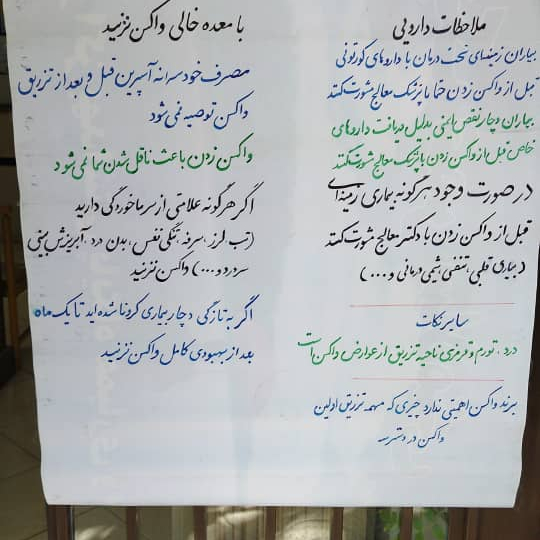 ملاحظات دارویی
بیماران زمینه‌ای تحت درمان با داروهای کورتونی
قبل از واکسن زدن حتما با پزشک معالج مشورت کنند
بیماران دچار نقص ایمنی بدلیل دریافت داروهای
خاص قبل از واکسن زدن با پزشک معالج مشورت کنند
در صورت وجود هرگونه بیماری زمینه‌ای
قبل از واکسن زدن با دکتر معالج مشورت کنند
(بیماری قلبی، تنفسی، شیمی درمانی و...)
سایر نکات
درد، تورم و قرمزی ناحیه تزریق از عوارض واکسن است
برند واکسن اهمیتی ندارد چیزی که مهمه تزریق اولین
واکسن در دسترسه
با معده خالی واکسن نزنید
مصرف خودسرانه آسپرین قبل و بعد از تزریق
واکسن توصیه نمی‌شود
واکسن زدن باعث ناقل شدن شما نمی‌شود
اگر هرگونه علامتی از سرماخوردگی دارید
(تب، لرز، سرفه، تنگی نفس، بدن درد، آبریزش بینی
سردرد و...) واکسن نزنید
اگر به تازگی دچار بیماری کرونا شده اید تا یک ماه
بعد از بهبودی کامل واکسن نزنید